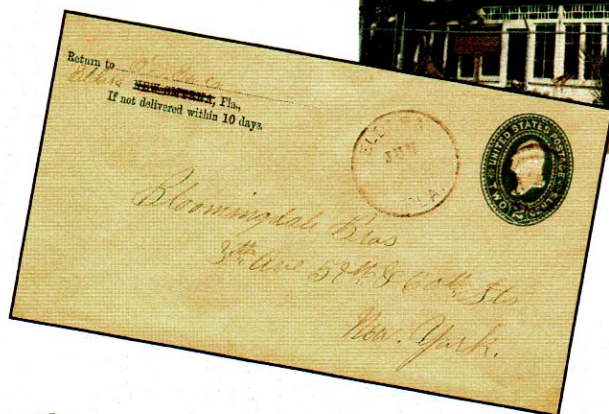 Return to
NEW SMYRNA, Fla.,
If not delivered within 10 days.
JUN
UNITED STATES POSTAGE
TWO CENTS
Bloomingdale Bros
3th Ave 59th & 60th Sts
New. York.